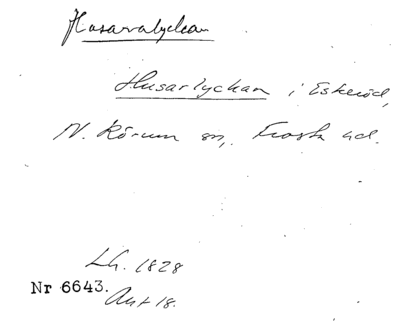 Husaralyckan
Husarlyckan i Eskeröd,
N. Rörum sn, Frosta hd.
Lh. 1828
Nr 6643.
Akt 18.